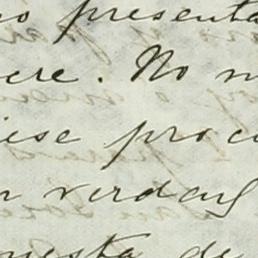 no presenta
ere. No
iese proc
n verdad
uesta de